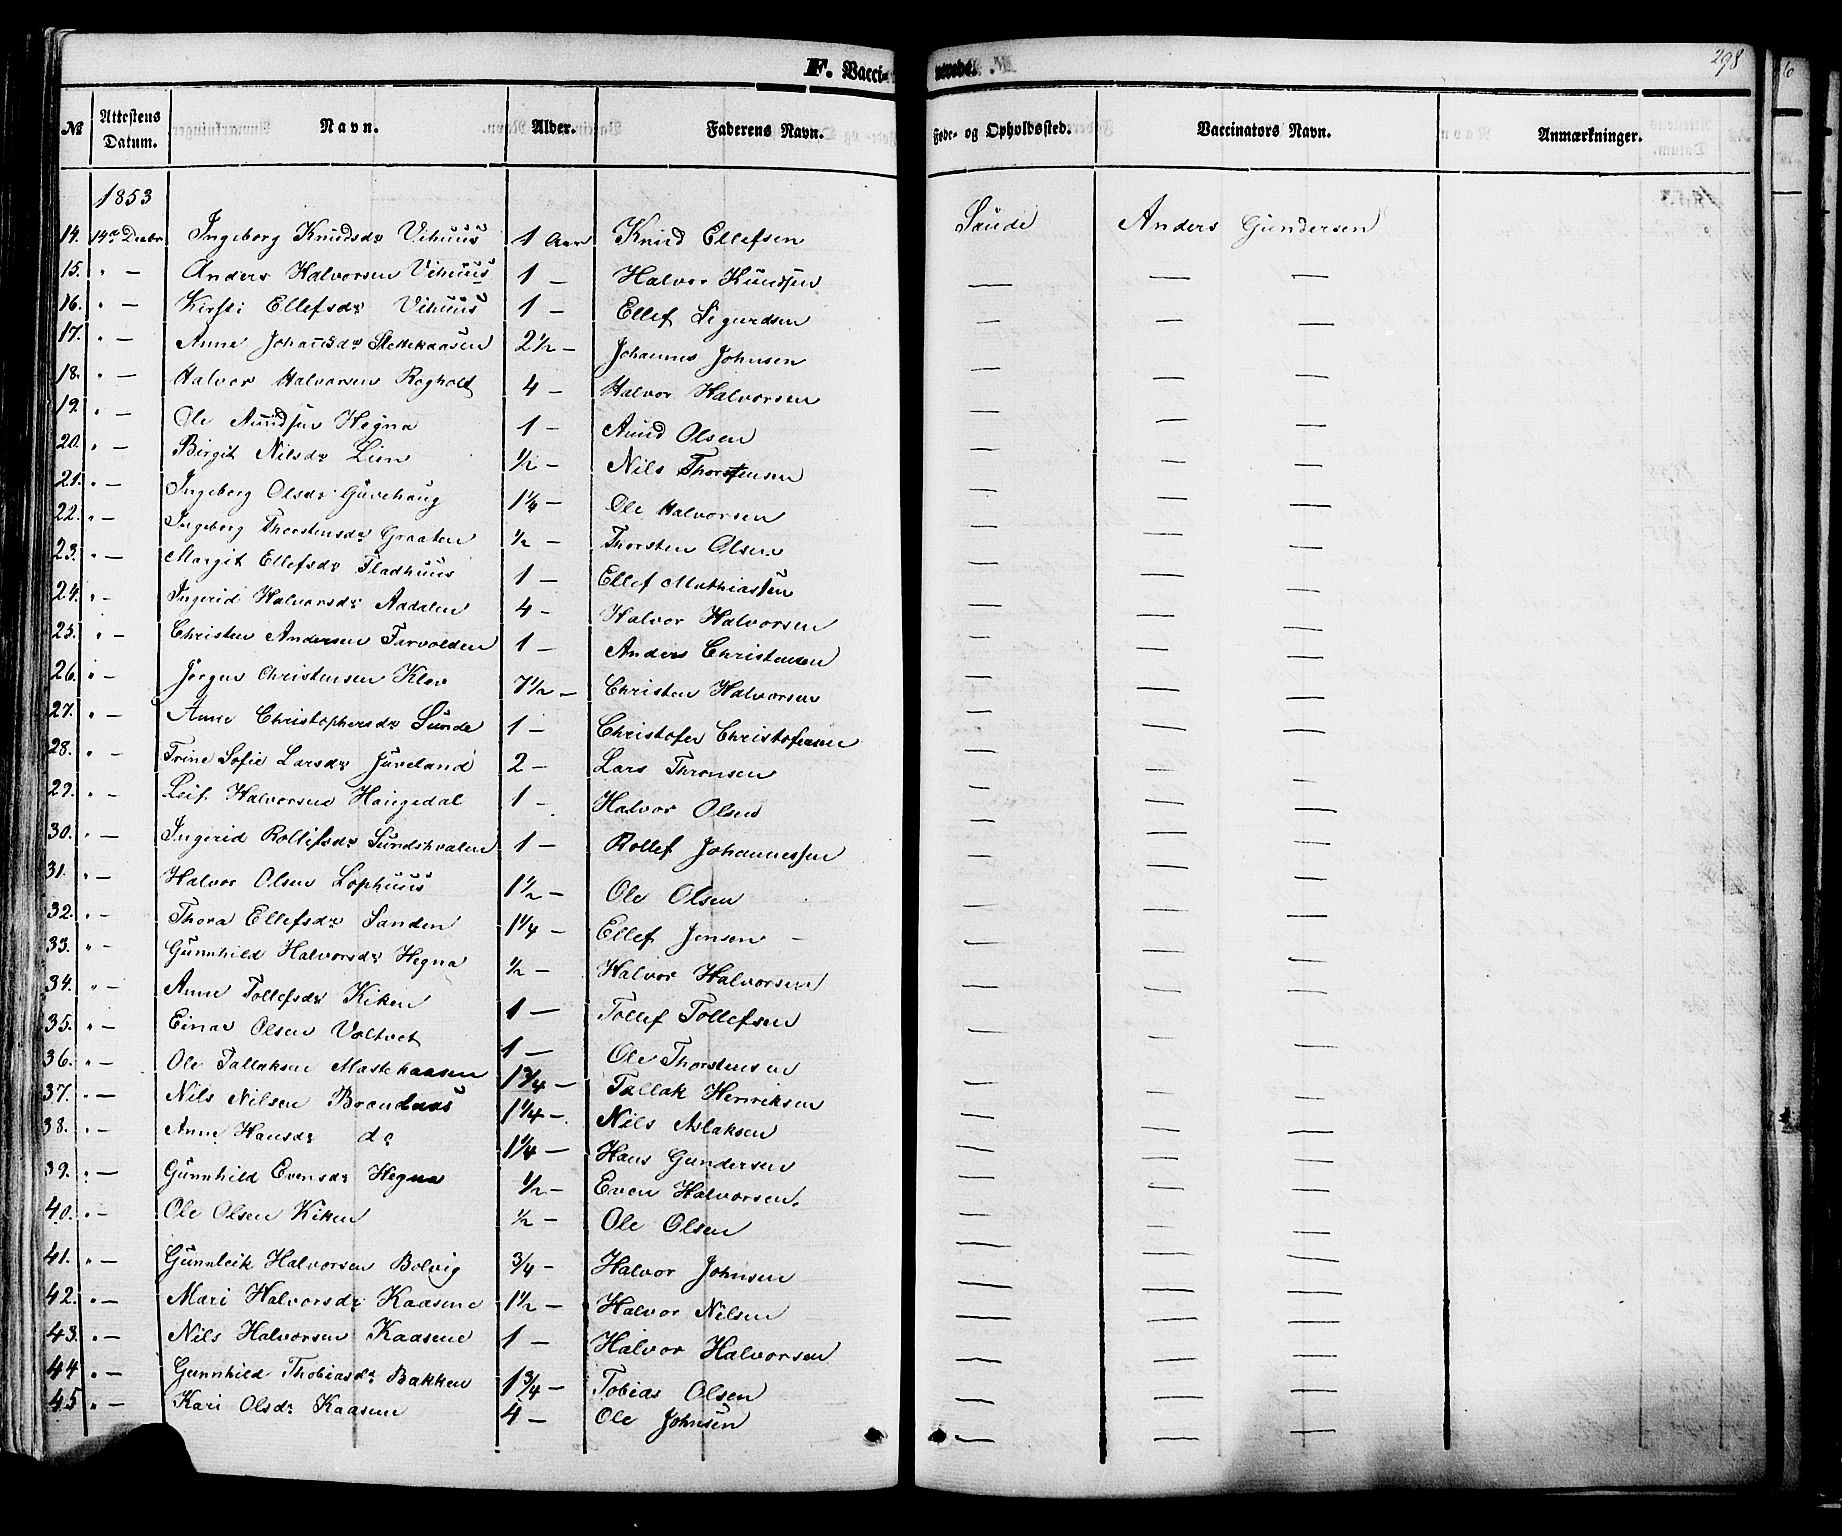 298
F. Vaccinerede.
№ Attestens Datum. Navn. Alder. Faderens Navn. Føde- og Opholdssted. Vaccinators Navn. Anmærkninger.
1853
14. 14de Decbr Ingeborg Knudsdr Vihuus 1 Aar Knud Ellefsen Saude Anders Gundersen
15. " — Anders Halvorsen Vihuus 1 — Halvor Knudsen — — —
16. " — Kirsti Ellefsdr Vihuus 1 — Ellef Sigurdsen — — —
17. " — Anne Johansdr Slettekaasen 2½ — Johannes Johnsen — — —
18. " — Halvor Halvorsen Roghold 4 — Halvor Halvorsen — — —
19. " — Ole Aundsen Hegna 1 — Aund Olsen — — —
20. " — Birgit Nilsdr Lien ½ — Nils Thorstensen — — —
21. " — Ingeborg Olsdr Guvehaug 1¼ — Ole Halvorsen — — —
22. " — Ingeborg Thorstensdr Graaten ½ — Thorsten Olsen — — —
23. " — Margit Ellefsdr Fladhuus 1 — Ellef Mathiassen — — —
24. " — Ingerid Halvorsdr Aadalen 4 — Halvor Halvorsen — — —
25. " — Christen Andersen Tarvolden 1 — Anders Christensen — — —
26. " — Jörgen Christensen Klev 7½ — Christen Halvorsen — — —
27. " — Anne Christophersdr Sunde 1 — Christofer Christofersen — — —
28. " — Trine Sofie Larsdr Juveland 2 — Lars Thronsen — — —
29. " — Leif Halvorsen Haugedal 1 — Halvor Olsen — — —
30. " — Ingerid Rollefsdr Sundskvalen 1 — Rollef Johannessen — — —
31. " — Halvor Olsen Lophuus 1½ — Ole Olsen — — —
32. " — Thora Ellefsdr Sanden 1¼ — Ellef Jensen — — —
33. " — Gunnhild Halvorsdr Hegna ½ — Halvor Halvorsen — — —
34. " — Anne Tollefsdr Kiken 1 — Tollef Tollefsen — — —
35. " — Einar Olsen Valtvet 1 — Ole Thorstensen — — —
36. " — Ole Tallaksen Mastekaasen 1¾ — Tallak Henriksen — — —
37. " — Nils Nilsen Brændaas 1¼ — Nils Aslaksen — — —
38. " — Anne Hansdr do 1¼ — Hans Gundersen — — —
39. " — Gunnhild Evensdr Hegna ½ — Even Halvorsen — — —
40. " — Ole Olsen Kiken ½ — Ole Olsen — — —
41. " — Gunnleik Halvorsen Bolvig ¾ — Halvor Johnsen — — —
42. " — Mari Halvorsdr Kaasene 1½ — Halvor Nilsen — — —
43. " — Nils Halvorsen Kaasene 1 — Halvor Halvorsen — — —
44 " — Gunnhild Thobiasdr Bakken 1¾ — Tobias Olsen — — —
45 " — Kari Olsdr Kaasene 4 — Ole Johnsen — — —